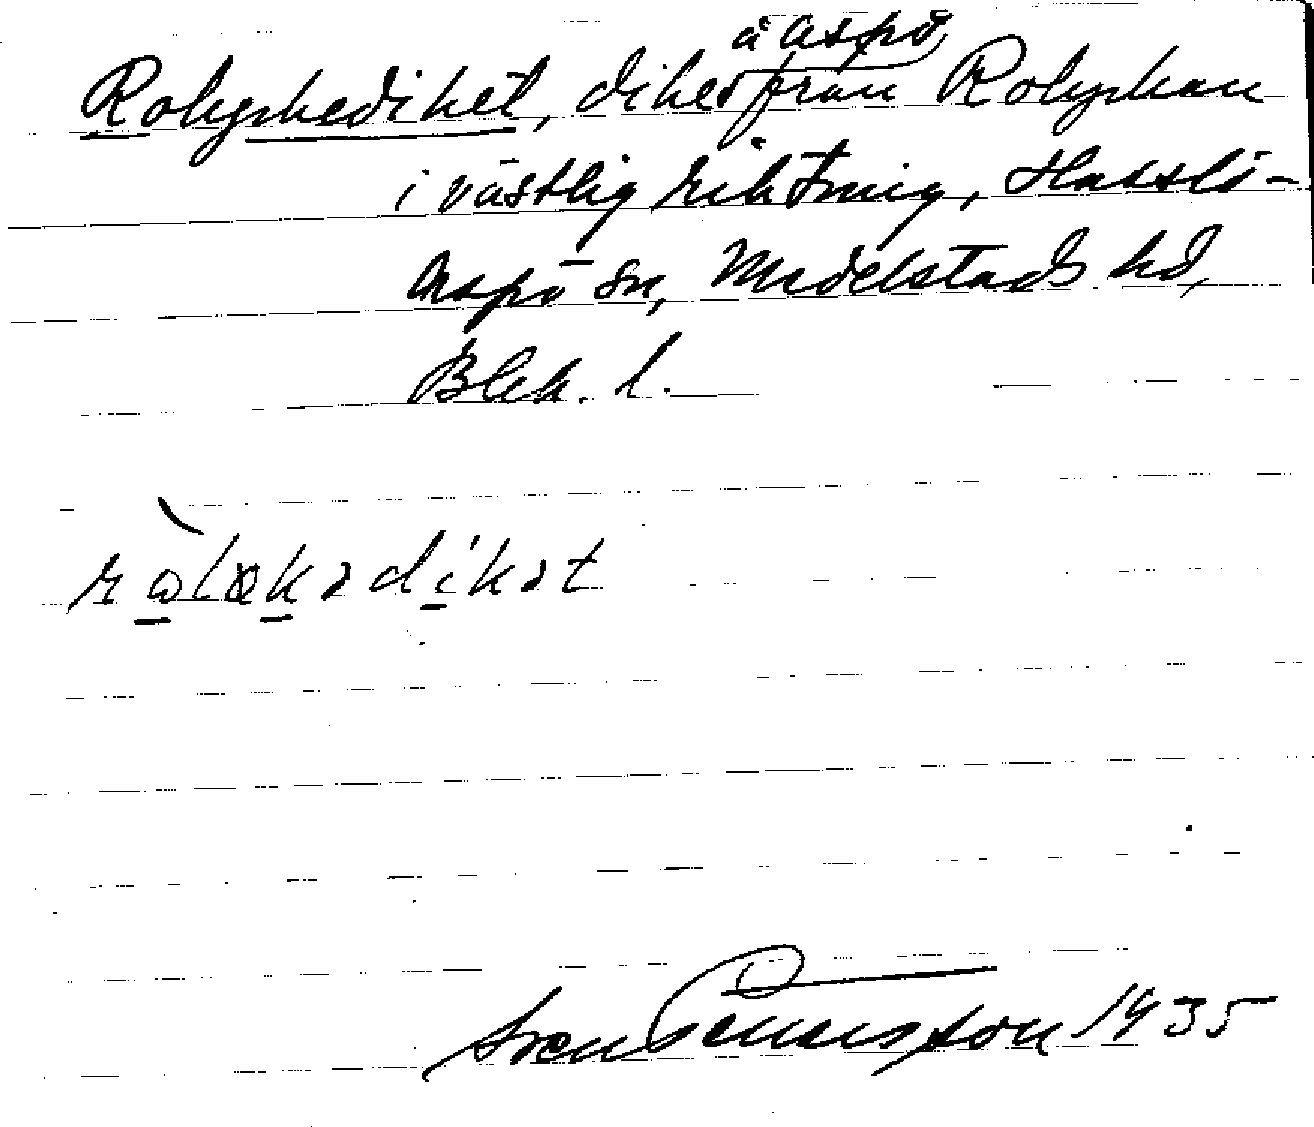 å Aspö
Rolyckediket, diket från Rolyckan
i västlig riktning, Hasslö-
Aspö sn, Medelstads hd,
Blek. l.
Sven Benson 1935